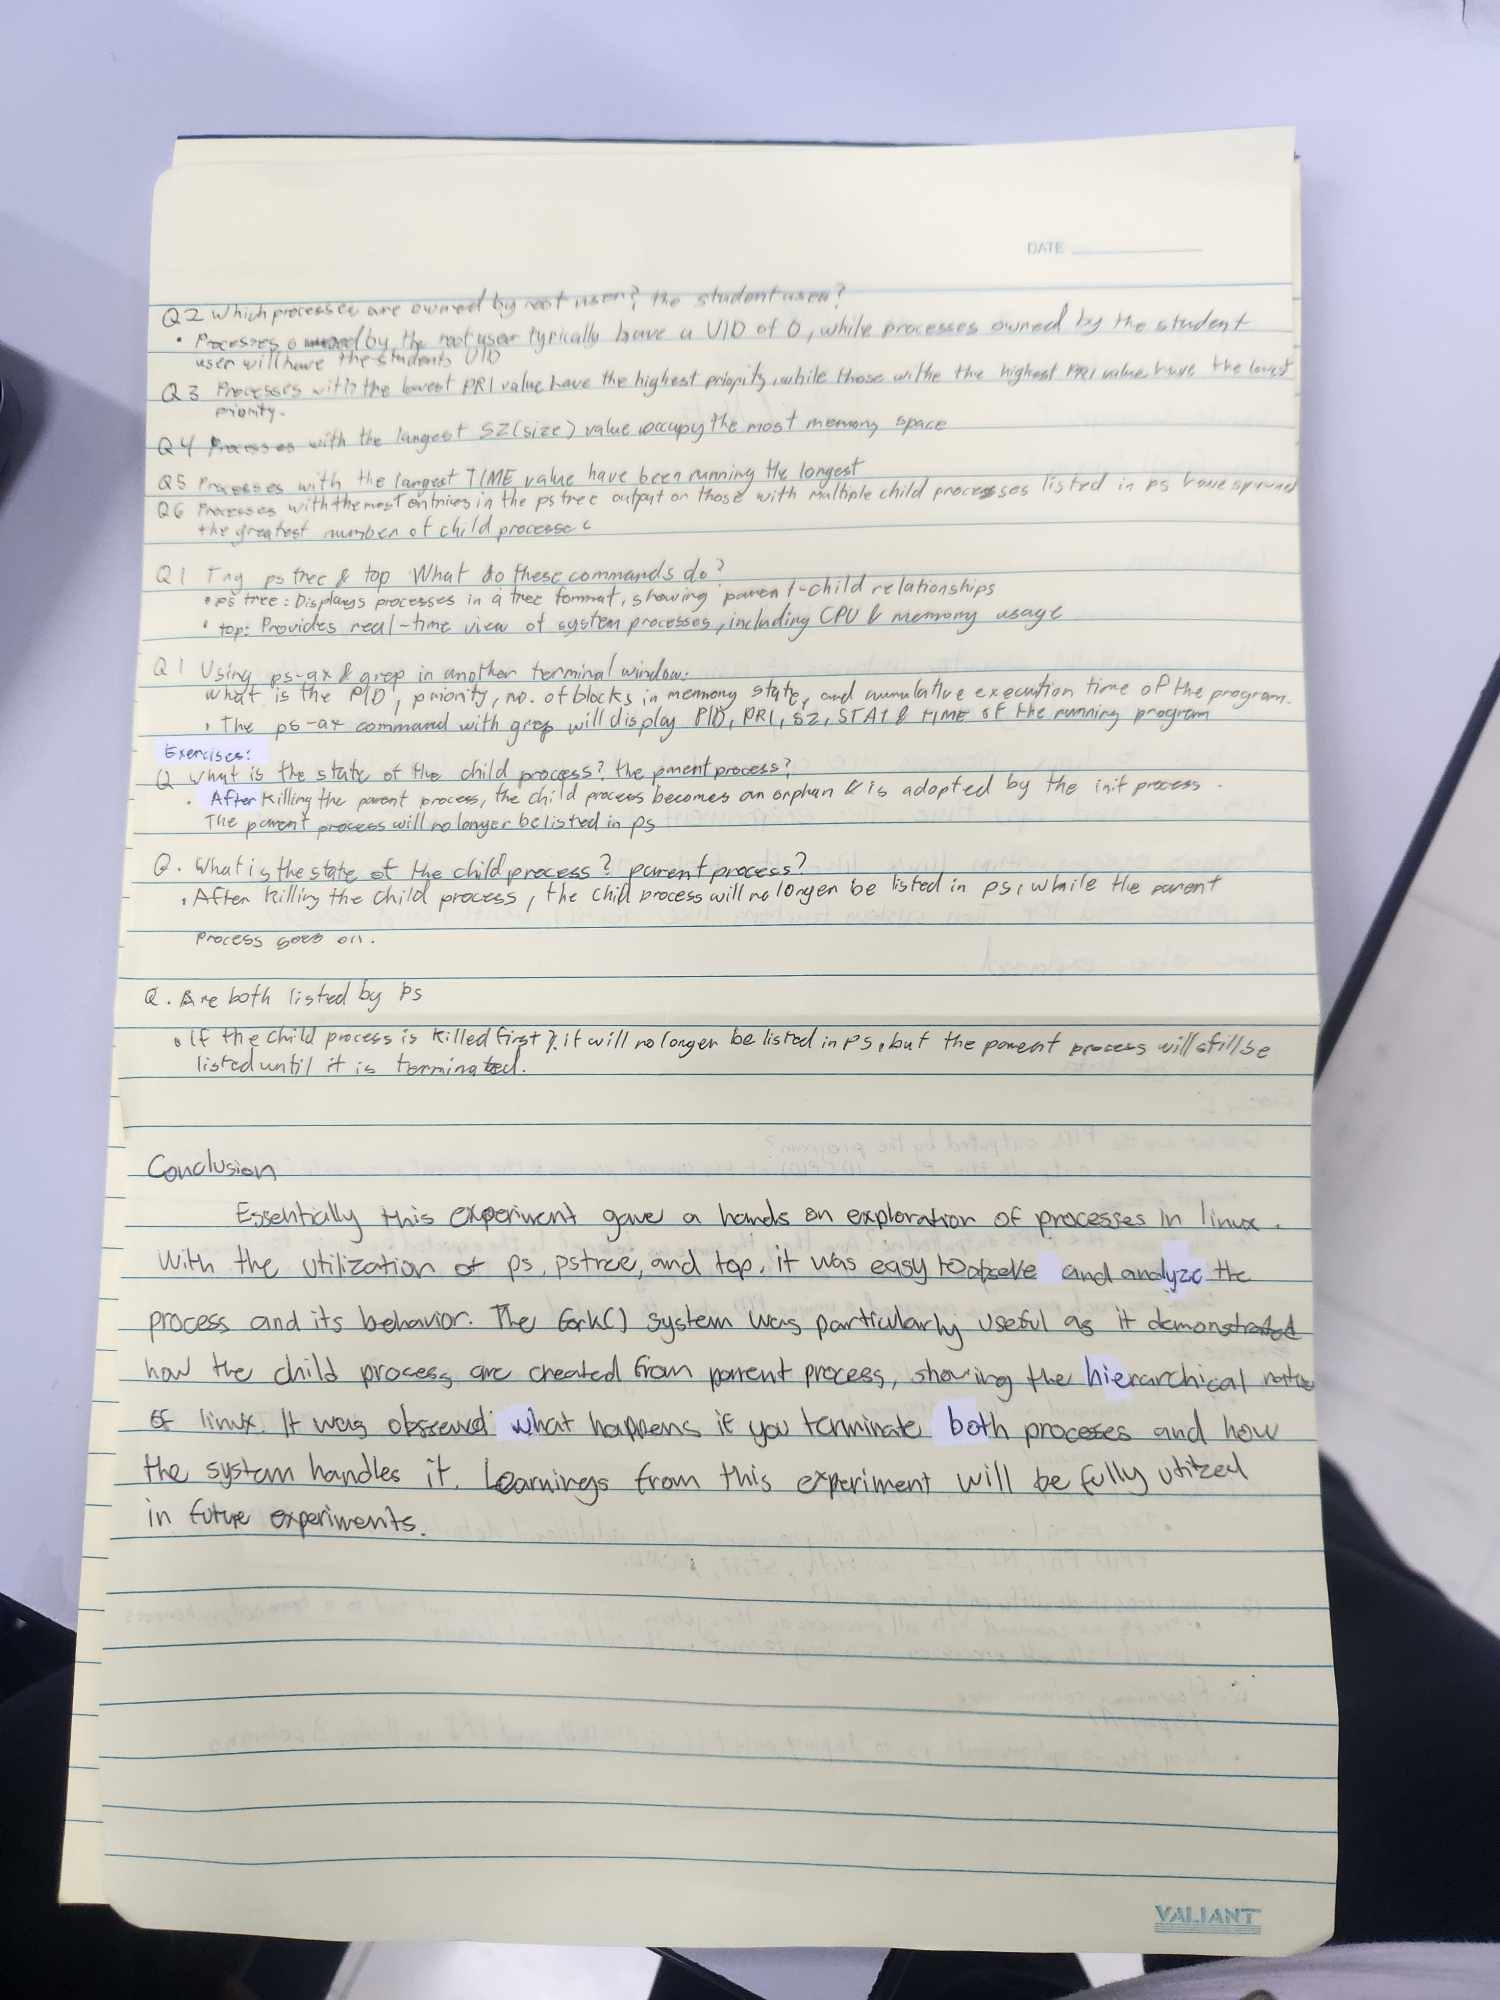 DATE
Q2 Which processes are owned by root user? the student user?
• Processes owned by the root user typically have a UID of 0, while processes owned by the student
user will have the students UID
Q3 Processes with the lowest PRI value have the highest priority, while those withe the highest PRI value have the lowest
priority.
Q4 Processes with the largest SZ(size) value occupy the most memory space
Q5 Processes with the largest TIME value have been running the longest
Q6 Processes with the most entries in the pstree output or those with multiple child processes listed in ps have spawned
the greatest number of child processes
Q1 Try pstree & top What do these commands do?
• ps tree: Displays processes in a tree format, showing parent-child relationships
• top: Provides real-time view of system processes, including CPU & memory usage
Q1 Using ps-ax & grep in another terminal window:
what is the PID, priority, no. of blocks in memory state, and cumulative execution time of the program.
• The ps-ax command with grep will display PID, PRI, SZ, STAT & TIME of the running program
Exercises:
Q What is the state of the child process? the parent process?
• After killing the parent process, the child process becomes an orphan & is adopted by the init process.
The parent process will no longer be listed in ps
Q. What is the state of the child process? parent process?
• After killing the child process, the child process will no longer be listed in ps, while the parent
process goes on.
Q. Are both listed by ps
• If the child process is killed first, it will no longer be listed in ps, but the parent process will still be
listed until it is terminated.
Conclusion
Essentially this experiment gave a hands on exploration of processes in linux.
With the utilization of ps, pstree, and top, it was easy to obseve and analyze the
process and its behavior. The fork() system was particularly useful as it demonstrated
how the child process are created from parent process, showing the hierarchical nature
of linux. It was observed what happens if you terminate both processes and how
the system handles it. Learnings from this experiment will be fully utilized
in future experiments.
VALIANT